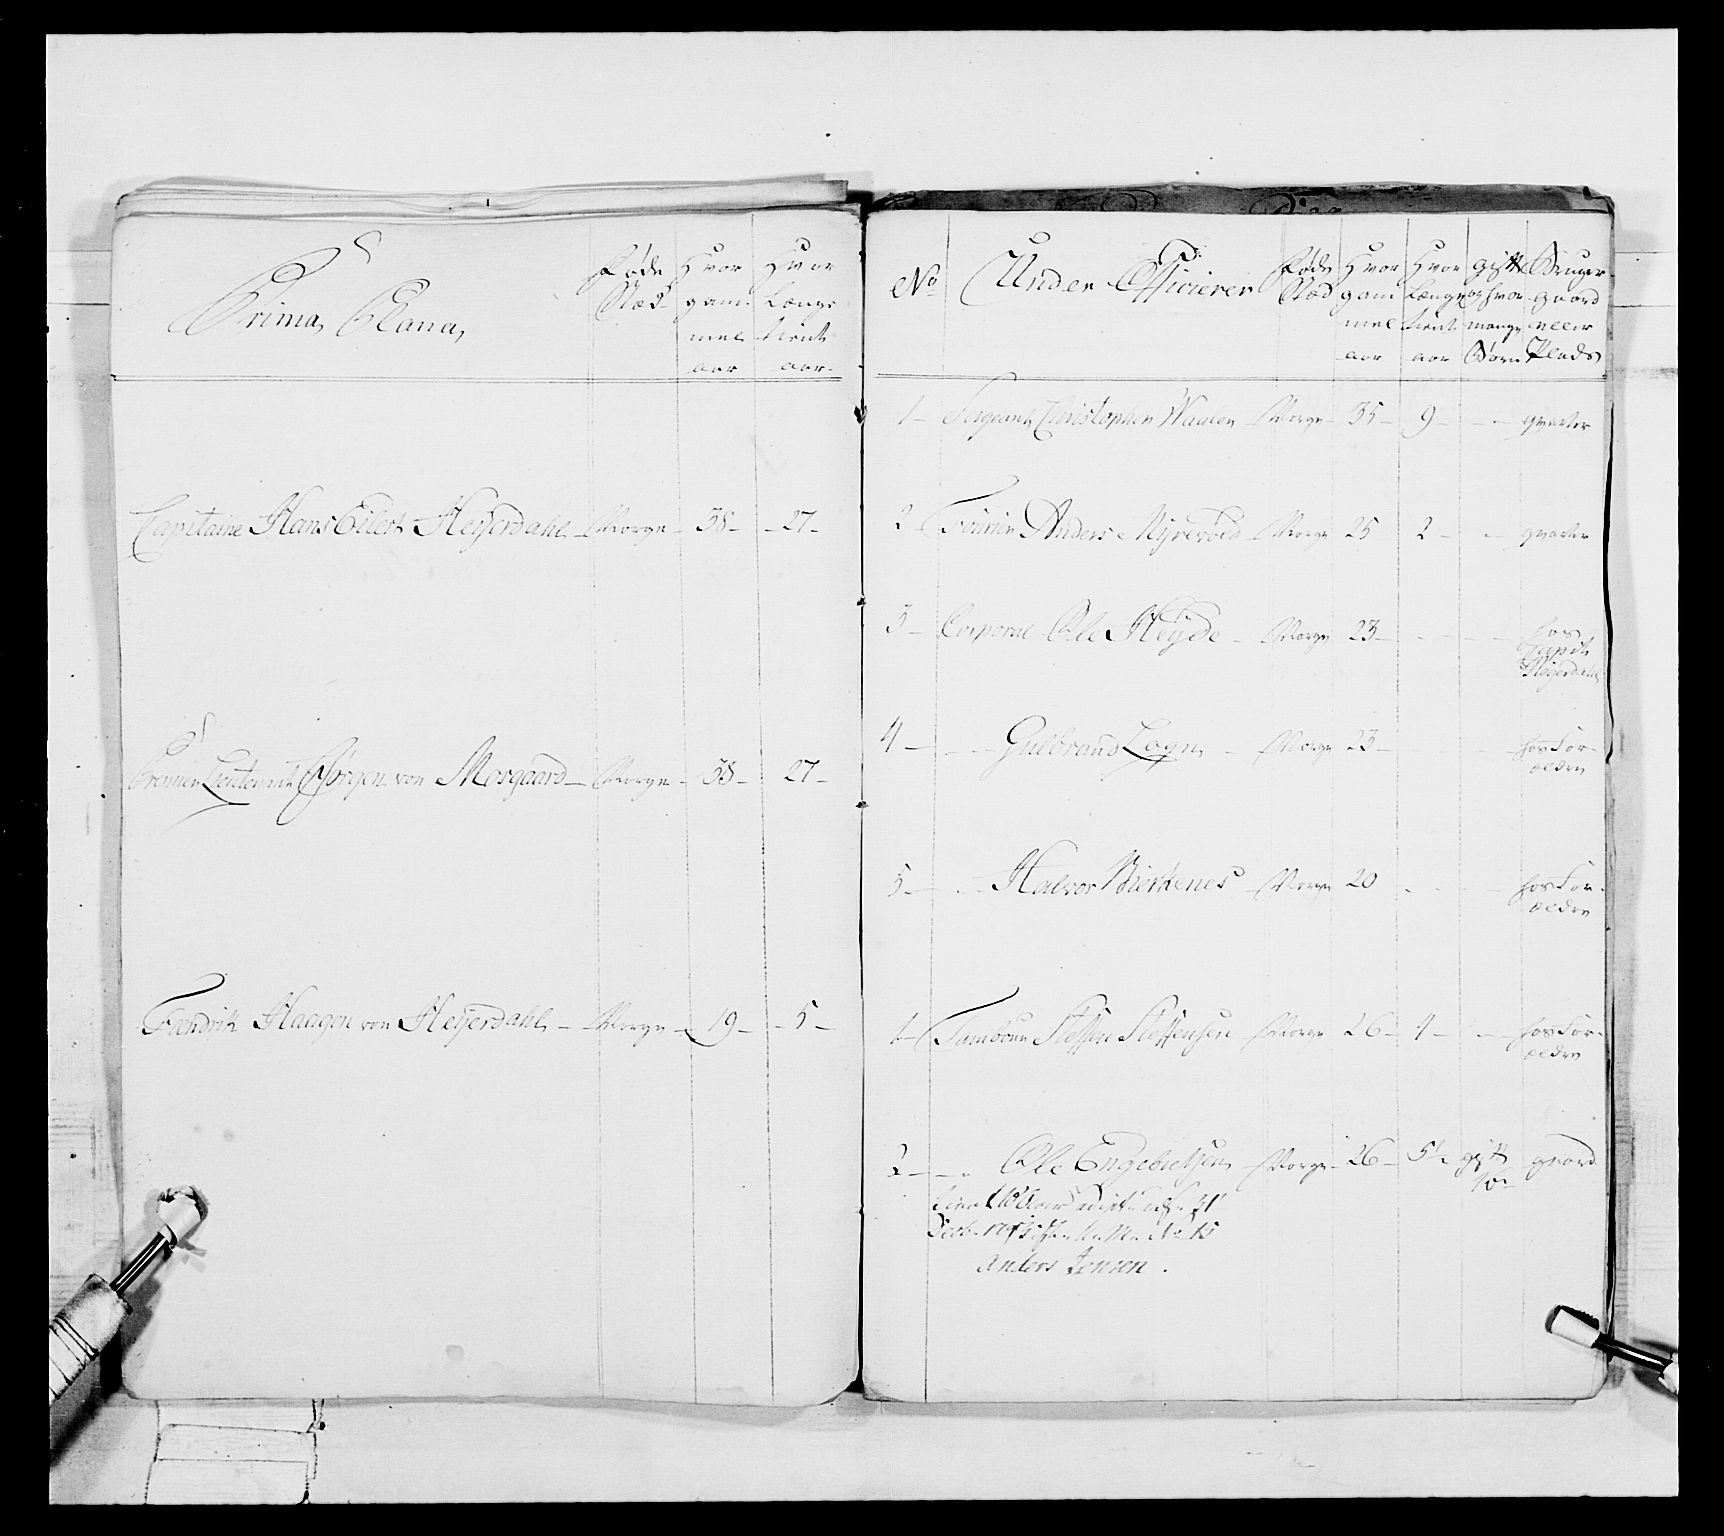 Prima Plana
Føde
Stæd
Hvor
gam
mel
aar
Hvor
Længe
tient
aar
Capitaine Hans Eilert Heyerdahl - Norge - 38 - 27 -
Premier Lieutenant Jørgen von Morgaard - Norge - 38 - 27 -
Fændrik Haagen von Heyerdahl - Norge - 19 - 5 -
No
Under Officierer
Føde
Stæd
Hvor
gam
mel
aar
Hvor
Længe
tient
aar
gift
og hvor
mange
Børn
Bruger
gaard
eller
Plads
1 - Sergeant Christopher Waaler - Norge - 35 - 9 - - qvarter
2 - Fourier Anders Myrerød - Norge 25 - 2 - - qvarter
3 - Corporal Ole Heyde - Norge 23 - - - hos
Capit
Heyerdahl
4 - - Gulbrand Logn - Norge 23 - - - hos For-
ældre
5 - - Halvor Bierkenes - Norge 20 - - - hos For-
ældre
1 - Tambour Steffen Steffensen - Norge 26 - 4 - - hos For-
ældre
2 - - Ole Engebretsen - Norge - 26 - 5 1/2 gift gaard
No 15
Anders Jensen .